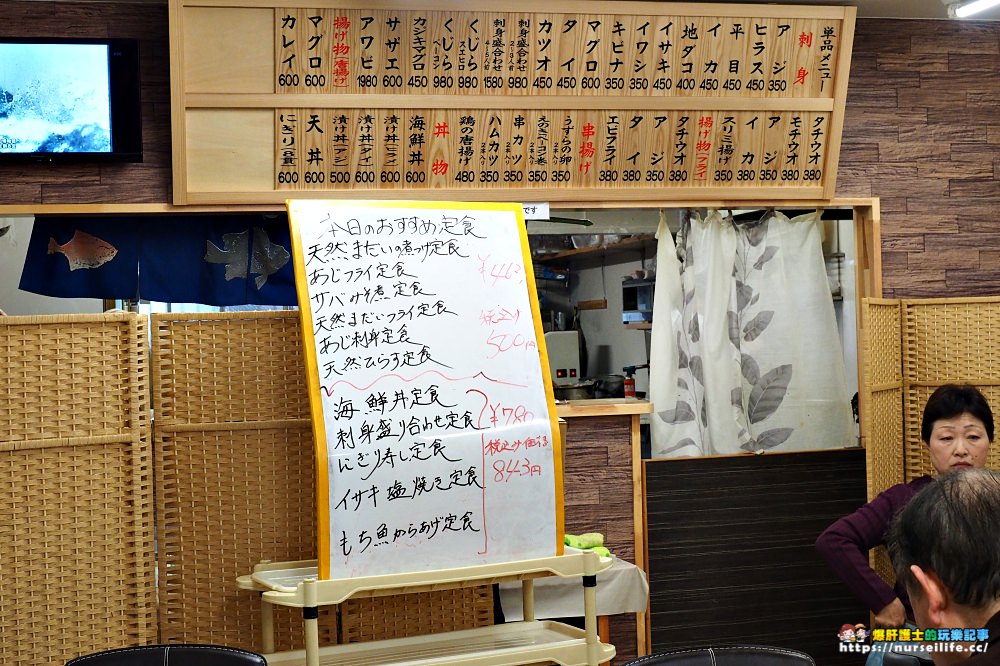 単品メニュー
刺身
アジ 350
ヒラス 350
平目 450
イカ 450
地ダコ 450
イサキ 450
イワシ 350
キビナ 350
マグロ 450
タイ 450
カツオ 450
刺身盛合わせ 2~3人前 980
刺身盛合わせ 4~5人前 1580
くじら スエヒロ 980
くじら ベーコン 950
カジキマグロ 450
サザエ 600
アワビ 1980
揚げ物(唐揚げ)
マグロ 600
カレイ 600
タチウオ 380
モチウオ 380
アジ 350
イカ 380
スリミ揚げ 350
揚げ物(フライ)
タチウオ 380
アジ 350
タイ 380
エビフライ 380
串揚げ
うずらの卵 350
えのきベーコン巻 2本入り 350
串カツ 2本入り 350
ハムカツ 2本入り 350
鶏の唐揚げ 480
丼物
海鮮丼 600
漬け丼(ヒラス) 600
漬け丼(タイ) 600
漬け丼(アジ) 500
天丼 600
にぎり 600
です
本日のおすすめ定食
天然まだいの煮つけ定食
あじフライ定食
サバみそ煮定食
天然まだいフライ定食
あじ刺身定食
天然ひらす定食
¥463
税込み
500円
海鮮丼定食
刺身盛り合わせ定食
にぎり寿し定食
イサキ塩焼き定食
もち魚からあげ定食
¥780
843円
爆肝護士的玩樂記事
https://nurseilife.cc/